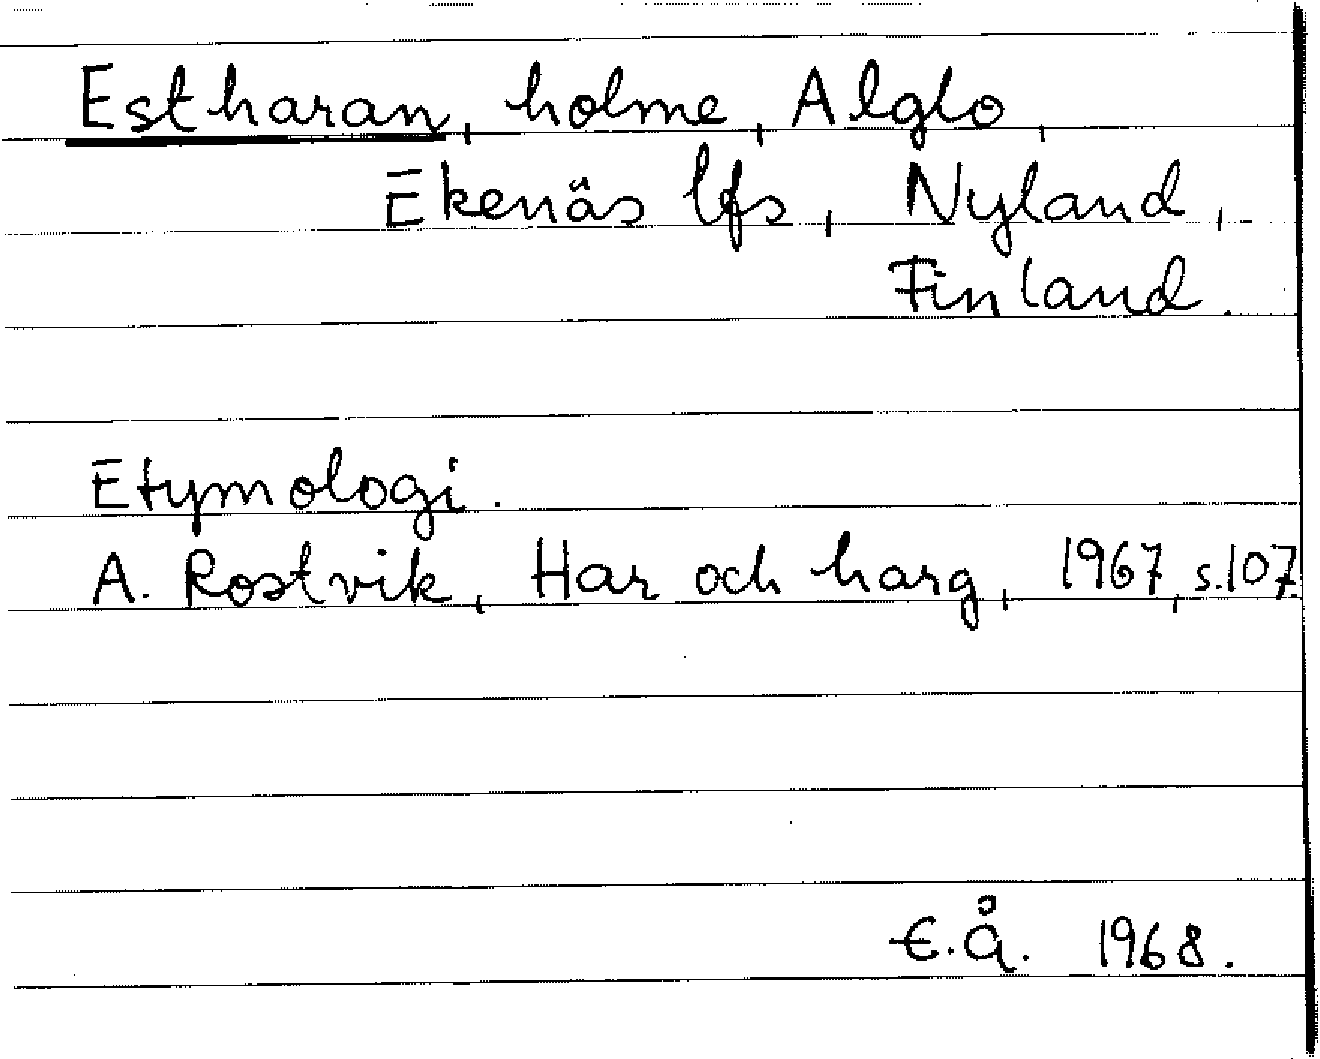 Estharan, holme, Alglo,
Ekenäs lfs, Nyland,
Finland.
Etymologi.
A. Rostvik, Har och harg, 1967, s.107.
E.Å. 1968.